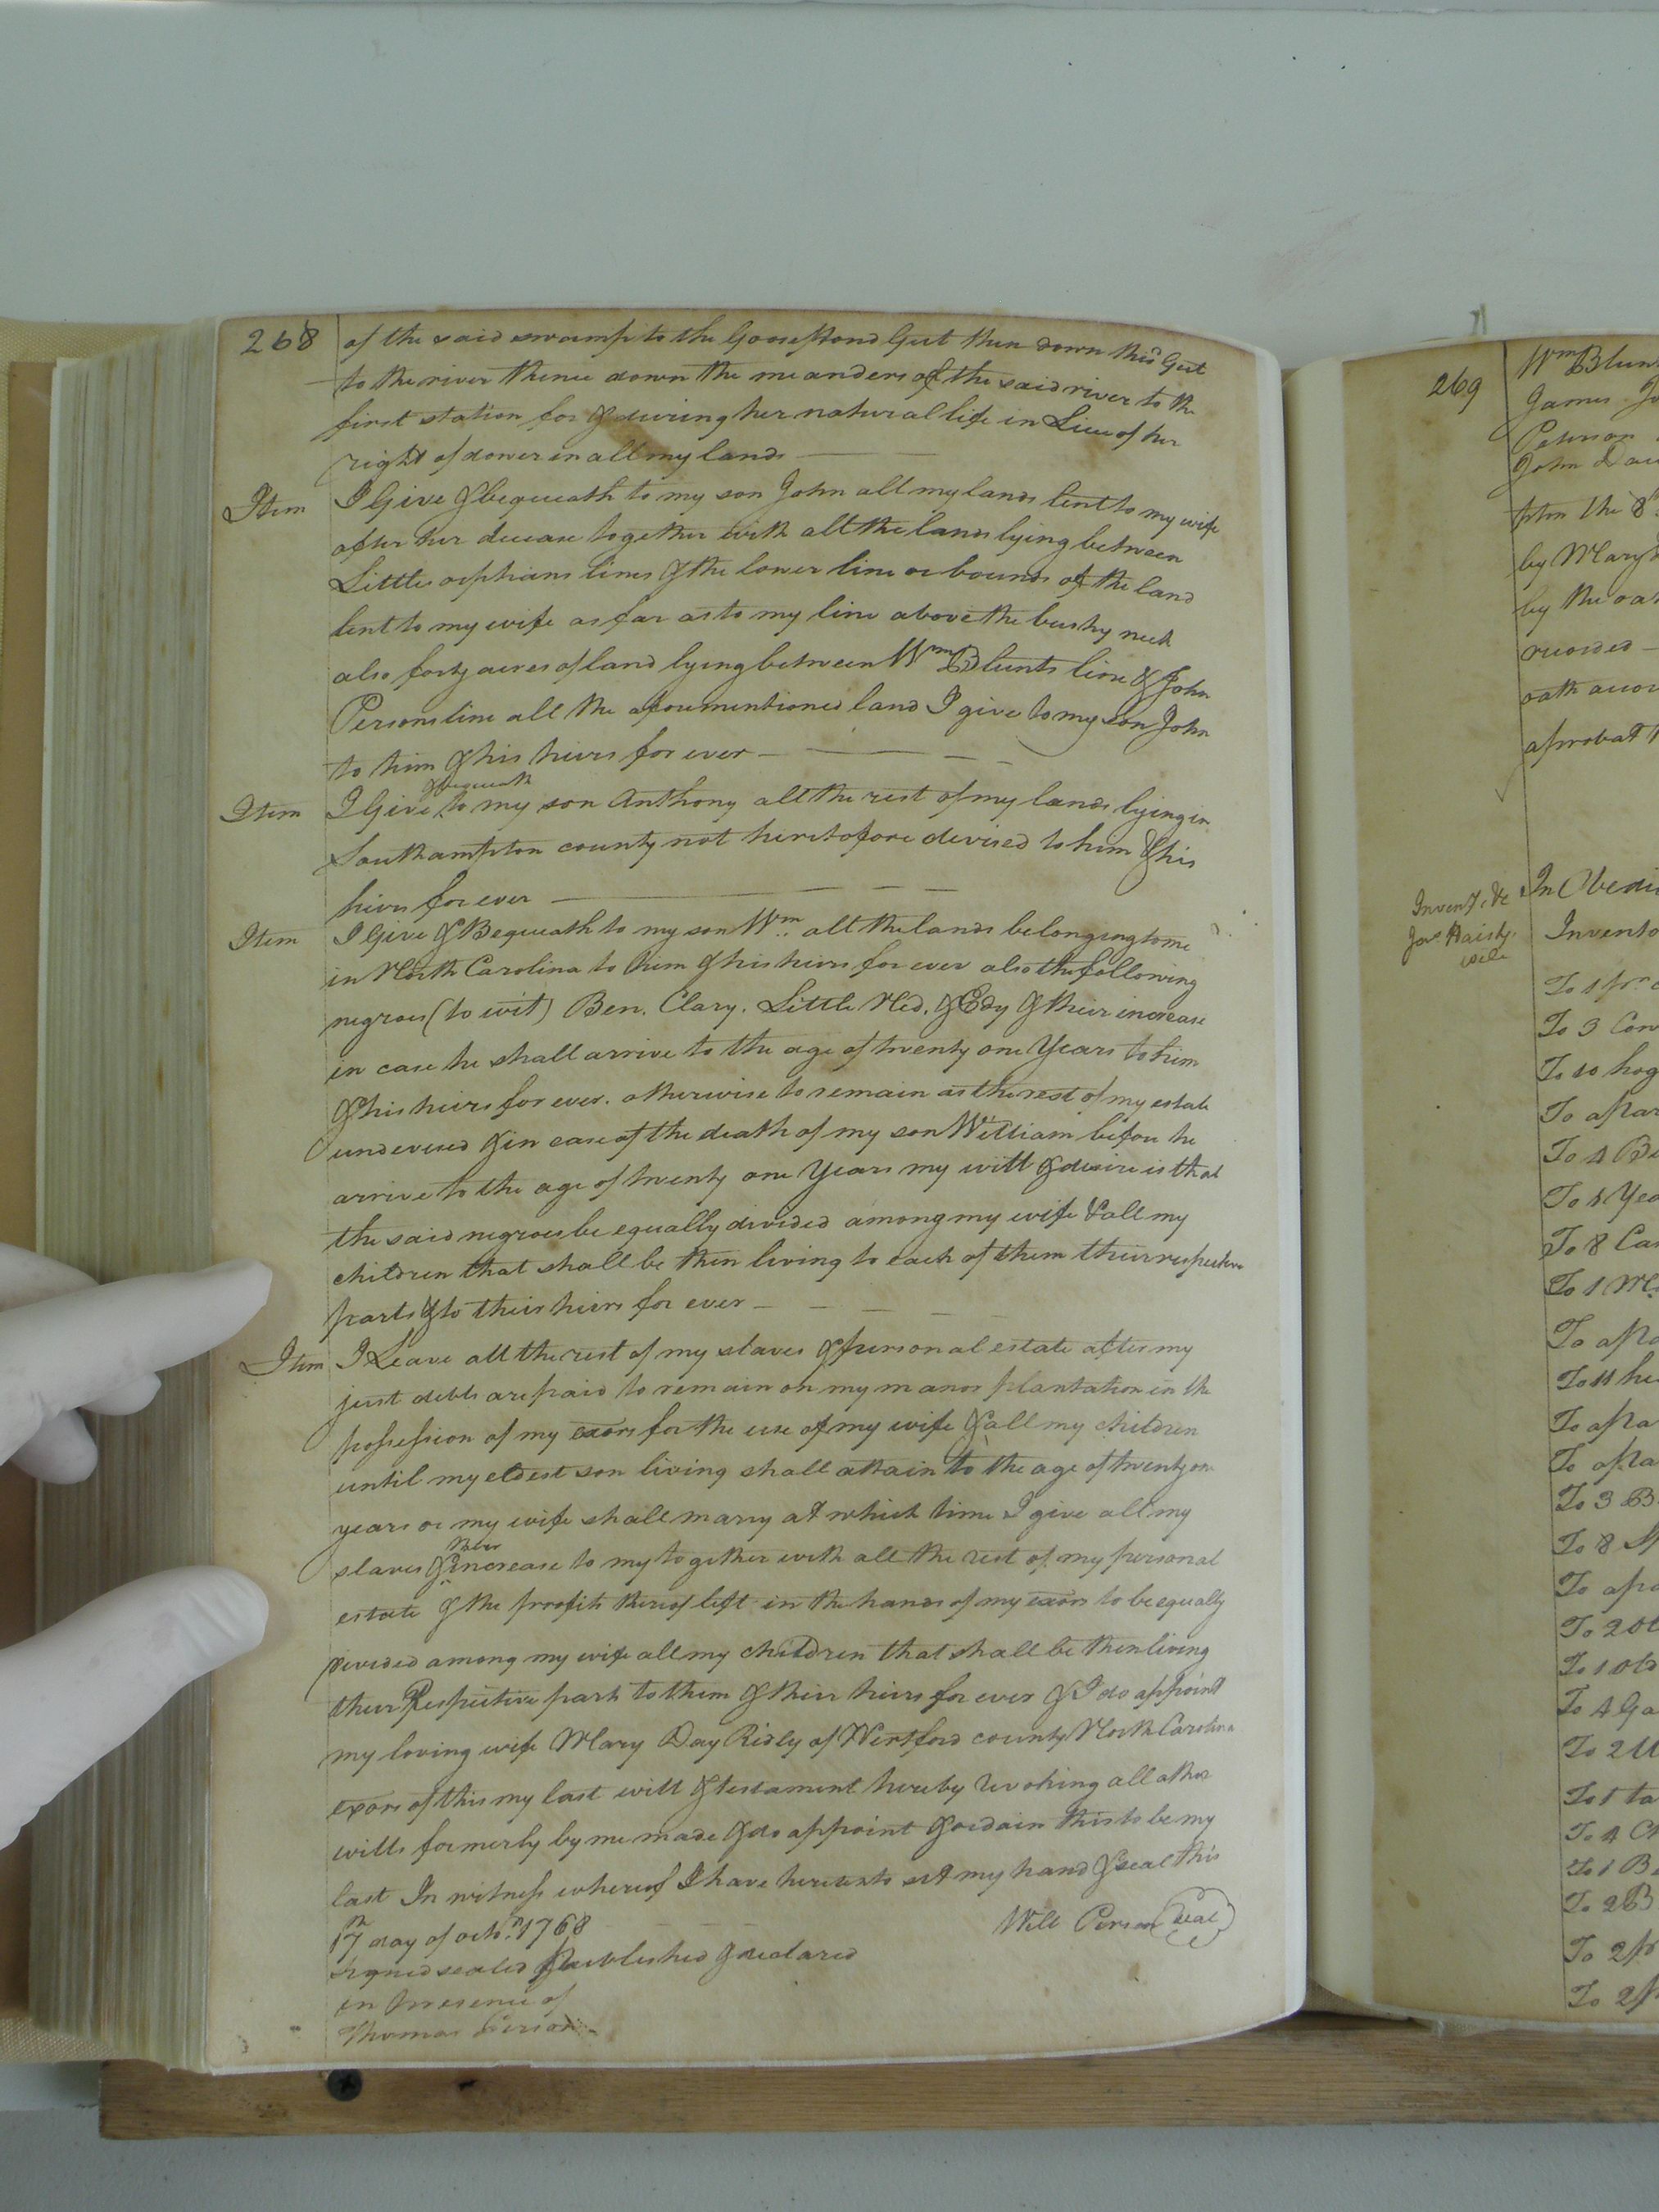 268
of the said swamp to the Goosepond Gut then down this Gut
to the river thence down the meanders of the said river to the
first station for & during her natural life in Lieu of her
right of dower in all my lands
Item I Give & bequeath to my son John all my lands lent to my wife
after her decease together with all the lands lying between
Littles orphans lines & the lower line or bounds of the land
lent to my wife as far as to my line above the bushy neck
also forty acres of land lying between Wm Blunts line & John
Persons line all the aforementioned land I give to my son John
to him & his heirs for ever
& bequeath
Item I Give to my son Anthony all the rest of my lands lying in
Southampton county not heretofore devised to him & his
heirs for ever
Item I Give & Bequeath to my son Wm all the lands belonging to me
in North Carolina to him & his heirs for ever also the following
negroes (to wit) Ben. Clary. Little Ned. & Edy & their increase
in case he shall arrive to the age of twenty one Years to him
& his heirs for ever. otherwise to remain as the rest of my estate
undevised & in case of the death of my son William before he
arrive to the age of twenty one Years my will & desire is that
the said negroes be equally divided among my wife & all my
children that shall be then living to each of them their respective
parts & to their heirs for ever
Item I Leave all the rest of my slaves & personal estate after my
just debts are paid to remain on my manor plantation in the
possession of my exors for the use of my wife & all my children
until my eldest son living shall attain to the age of twenty one
years or my wife shall marry at which time I give all my
slaves & increase to my together with all the rest of my personal
estate & the profits thereof left in the hands of my exors to be equally
devided among my wife all my children that shall be then living
their Respective part to them & their heirs for ever & I do appoint
my loving wife Mary Day Ridly of Hertford county North Carolina
exors of this my last will & testament hereby revoking all other
wills formerly by me made & do appoint & ordain this to be my
last In witness whereof I have hereunto set my hand & seal this
17th day of octo. 1768 Will Person Seal
signed sealed published & declared
in presence of
Thomas Person
269
Wm Blun
James Jo
Peterson
John Dav
pton the 8
by Mary
by the oa
recorded
oath accor
aprobat
Invent. &c
In Obedi
Invento
To 1 pr
To 3 Cow
To 10 hog
To a par
To 4 Be
To 1 Yea
To 8 Ca
To 1 M
To a pa
To 11 he
To a pa
To a pa
To 3 B
To 8
To a pa
To 2 ol
To 1 old
To 4 Ga
To 2
To 1 ta
To 4 Ch
To 1 B
To 2 B
To 2 p
To 2 p